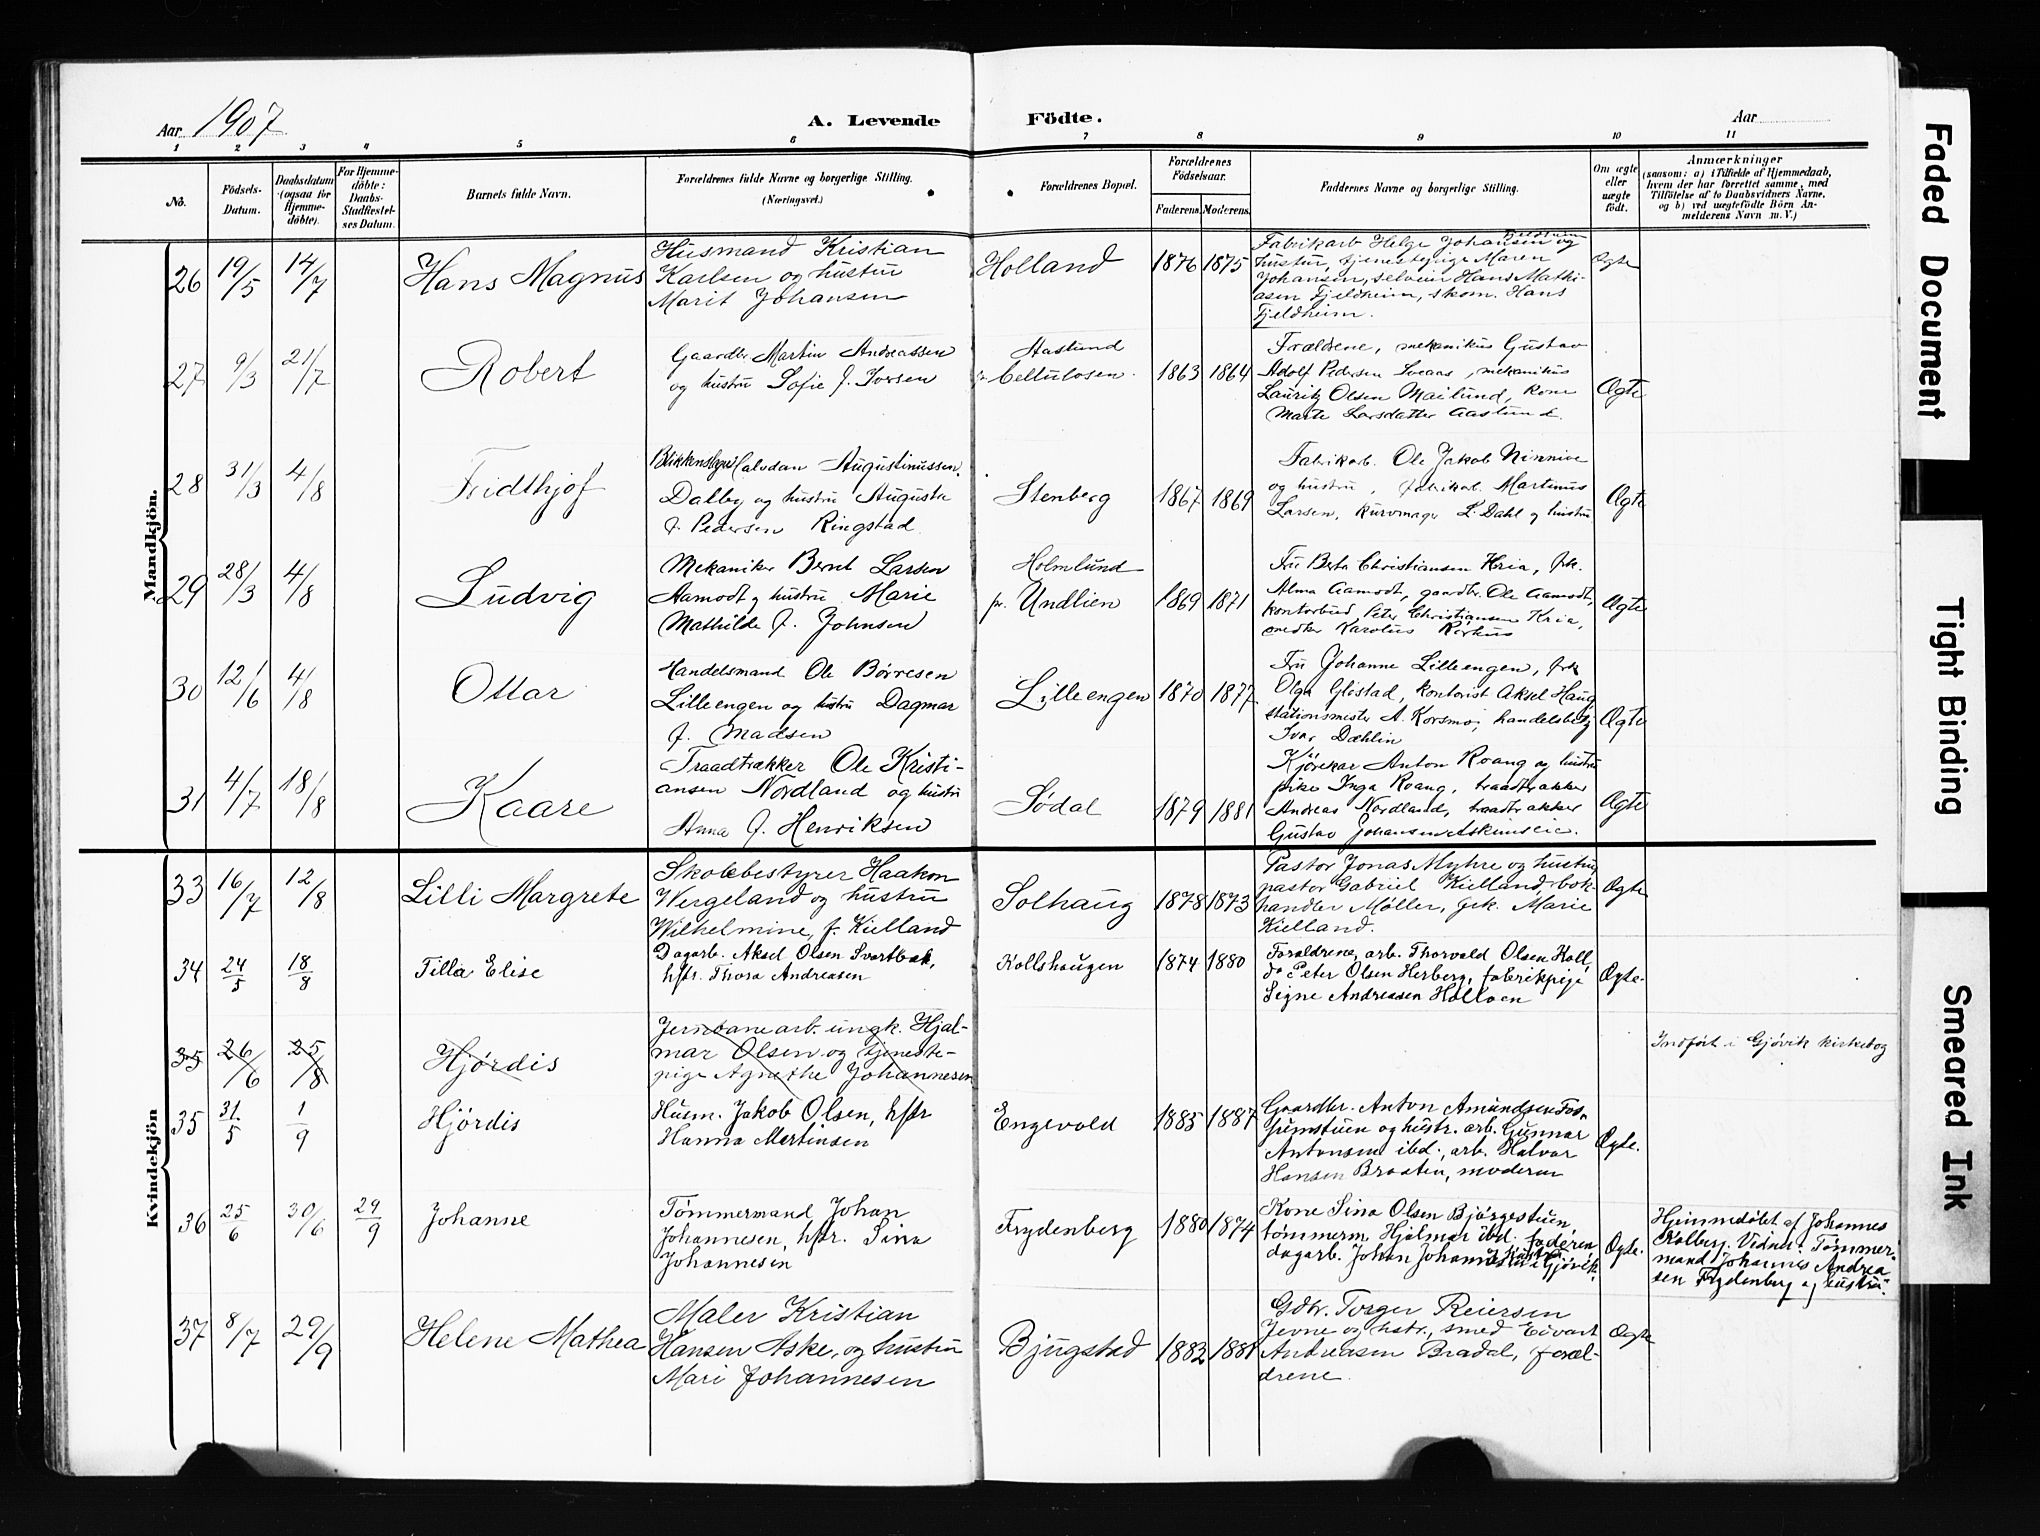 Aar 1907
A. Levende
Födte.
Aar
1 2 3 4 5 6 7 8 9 10 11
No.
Födsels-
Datum.
Daabsdatum
(ogsaa for
Hjemme-
döbte).
For Hjemme-
döbte:
Daabs-
Stadfæstel-
ses Datum.
Barnets fulde Navn.
Forældrenes fulde Navne og borgerlige Stilling.
(Næringsvei.)
Forældrenes Bopæl.
Forældrenes
Födselsaar.
Faderens.
Moderens.
Faddernes Navne og borgerlige Stilling.
Om ægte
eller
uægte
födt.
Anmærkninger
(saasom: a) i Tilfælde af Hjemmedaab,
hvem der har forrettet samme, med
Tilföielse af to Daabsvidners Navne,
og b) ved uægtefödte Börn An-
melderens Navn m. V.)
Mandkjön.
26 19/5 14/7 Hans Magnus
Husmand Kristian
Karlsen og hustru
Marit Johansen
Holland 1876 1875
Fabrikarb Helge Johansen Fjeldheim og
hustru, tjenestepige Maren
Johansen, selveier Hans Mathi-
asen Fjeldheim, skom. Hans
Fjeldheim.
Ægte
27 9/3 21/7 Robert
Gaardbr Martin Andreassen
og hustru Sofie f. Iversen
Aaslund
pr. Cellulosen. 1863 1864
Forældrene, mekanikus Gustav
Adolf Pedersen Sveaas, mekanikus
Lauritz Olsen Mailund, kone
Marte Larsdatter Aaslund.
Ægte
28 31/3 4/8 Fridthjof
Blikkenslager Halvdan Augustinussen
Dalby og hustru Augusta
f. Pedersen Ringstad
Stenberg 1867 1869
Fabrikarb. Ole Jakob Ninnive
og hustru, fabrikarb. Martinus
Larsen, kurvmager L. Dahl og hustru
Ægte
29 28/3 4/8 Ludvig
Mekaniker Bernt Larsen
Aamodt og hustru Marie
Mathilde f. Johnsen
Holmlund
pr. Undlien 1869 1871
Fru Berta Christiansen Kria, frk.
Alma Aamodt, gaardbr. Ole Aamodt,
kontorbud Peter Christiansen Kria,
snedker Karolus
Ægte
30 12/6 4/8 Ottar
Handelsmand Ole Børresen
Lilleengen og hustru Dagmar
f. Madsen
Lilleengen 1870 1877.
Fru Johanne Lilleengen, frk
Olga Gløstad, kontorist Aksel Haug
stationsmester A. Korsmo, handelsbetj
Ivar Dæhlin
Ægte
31 4/7 18/8 Kaare
Traadtrækker Ole Kristi-
ansen Nordland og hustru
Anna f. Henriksen
Sødal 1879 1881
Kjørekar Anton Roang og hustru
pike Inga Roang, traadtrækker
Andreas Nordland, traadtrækker
Gustav Johansen Askimseie.
Ægte
Kvindekjön
33 16/7 12/8 Lilli Margrete
Skolebestyrer Haakon
Wergeland og hustru
Wilhelmine, f. Kielland
Solhaug 1878 1873
Pastor Jonas Myhre og hustru,
pastor Gabriel Kielland, bok-
handler Møller, frk. Marie
Kielland.
Ægte
34 24/5 18/8 Tilla Elise
Dagarb. Aksel Olsen Svartbak,
hstr. Thora Andreasen
Kollshaugen 1874 1880
Foraldrene, arb. Thorvald Olsen Koll
do Peter Olsen Herberg, fabrikpige
Signe Andreasen Holloen
Ægte.
35 26/6 25/8 Hjørdis
Jernbanearb. ungk. Hjal-
mar Olsen og tjeneste-
pige Agnethe Johannesen
Indført i Gjøvik kirkebog
35 31/5 1/9 Hjördis
Husm. Jakob Olsen, hstr
Hanna Martinsen
Engevold 1885 1887
Gaardbr. Anton Amundsen Fos-
sumstuen og hustr. arb. Gunnar
Antonsen ibd., arb. Halvor
Hansen Braaten, moderen
Ægte.
36 25/6 30/6 29/9 Johanne
Tømmermand Johan
Johannesen, hstr. Sina
Johannesen
Frydenberg 1880 1874
Kone Sina Olsen Bjørgestuen,
tømmerm. Hjalmar ibd. faderen,
dagarb. Johan Johannesen i Gjøvik
Ægte.
Hjemmedøbt af Johannes
Kolberg. Vidner: Tømmer-
mand Johannes Andrea
sen Frydenberg og hustru.
37 8/7 29/9 Helene Mathea
Maler Kristian
Hansen Aske, og hustru
Mari Johannesen
Bjugstad 1882 1881
Gdbr. Torger Reiersen
Jevne og hstr., smed Eivart
Andreasen Bradal, foræl-
drene.
Ægte
Faded Document
Tight Binding
Smeared Ink